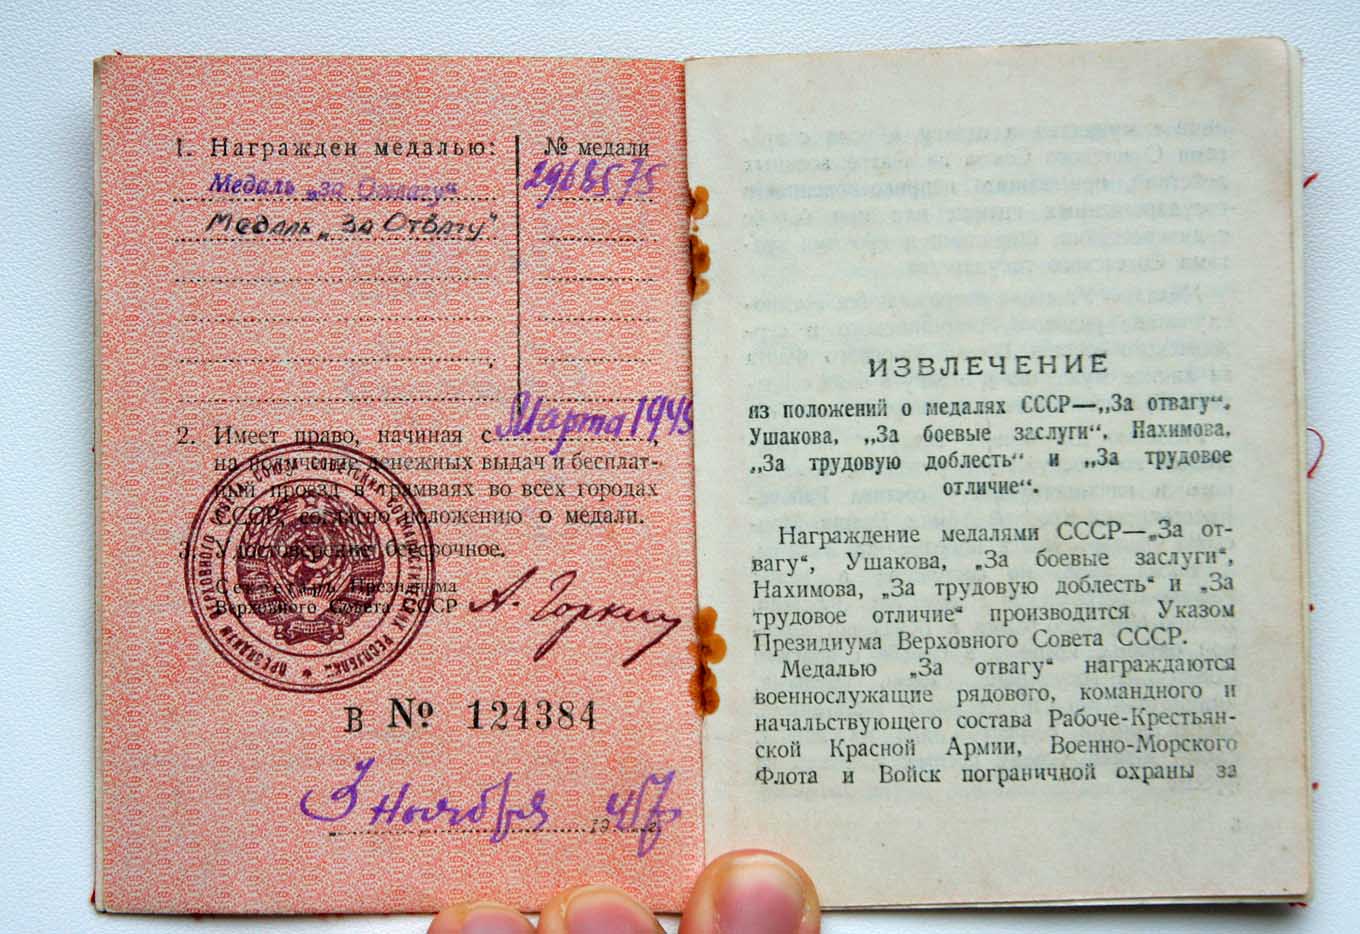 1. Награжден медалью:
№ медали
Медаль „за Отвагу“
2968575
Медаль „За Отвагу“
Марта 1945
2. Имеет право, начиная с
на получение денежных выдач и бесплат-
ный проезд в трамваях во всех городах
СССР, согласно положению о медали.
3. Удостоверение бессрочное.
Секретарь Президиума
Верховного Совета СССР
А. Горкин
ПРЕЗИДИУМ ВЕРХОВНОГО СОВЕТА СОЮЗА СОВЕТСКИХ СОЦИАЛИСТИЧЕСКИХ РЕСПУБЛИК
В № 124384
3 ноября 1945 г.
ИЗВЛЕЧЕНИЕ
из положений о медалях СССР—„За отвагу“,
Ушакова, „За боевые заслуги“, Нахимова,
„За трудовую доблесть“ и „За трудовое
отличие“.
Награждение медалями СССР—„За от-
вагу“, Ушакова, „За боевые заслуги“,
Нахимова, „За трудовую доблесть“ и „За
трудовое отличие“ производится Указом
Президиума Верховного Совета СССР.
Медалью „За отвагу“ награждаются
военнослужащие рядового, командного и
начальствующего состава Рабоче-Крестьян-
ской Красной Армии, Военно-Морского
Флота и Войск пограничной охраны за